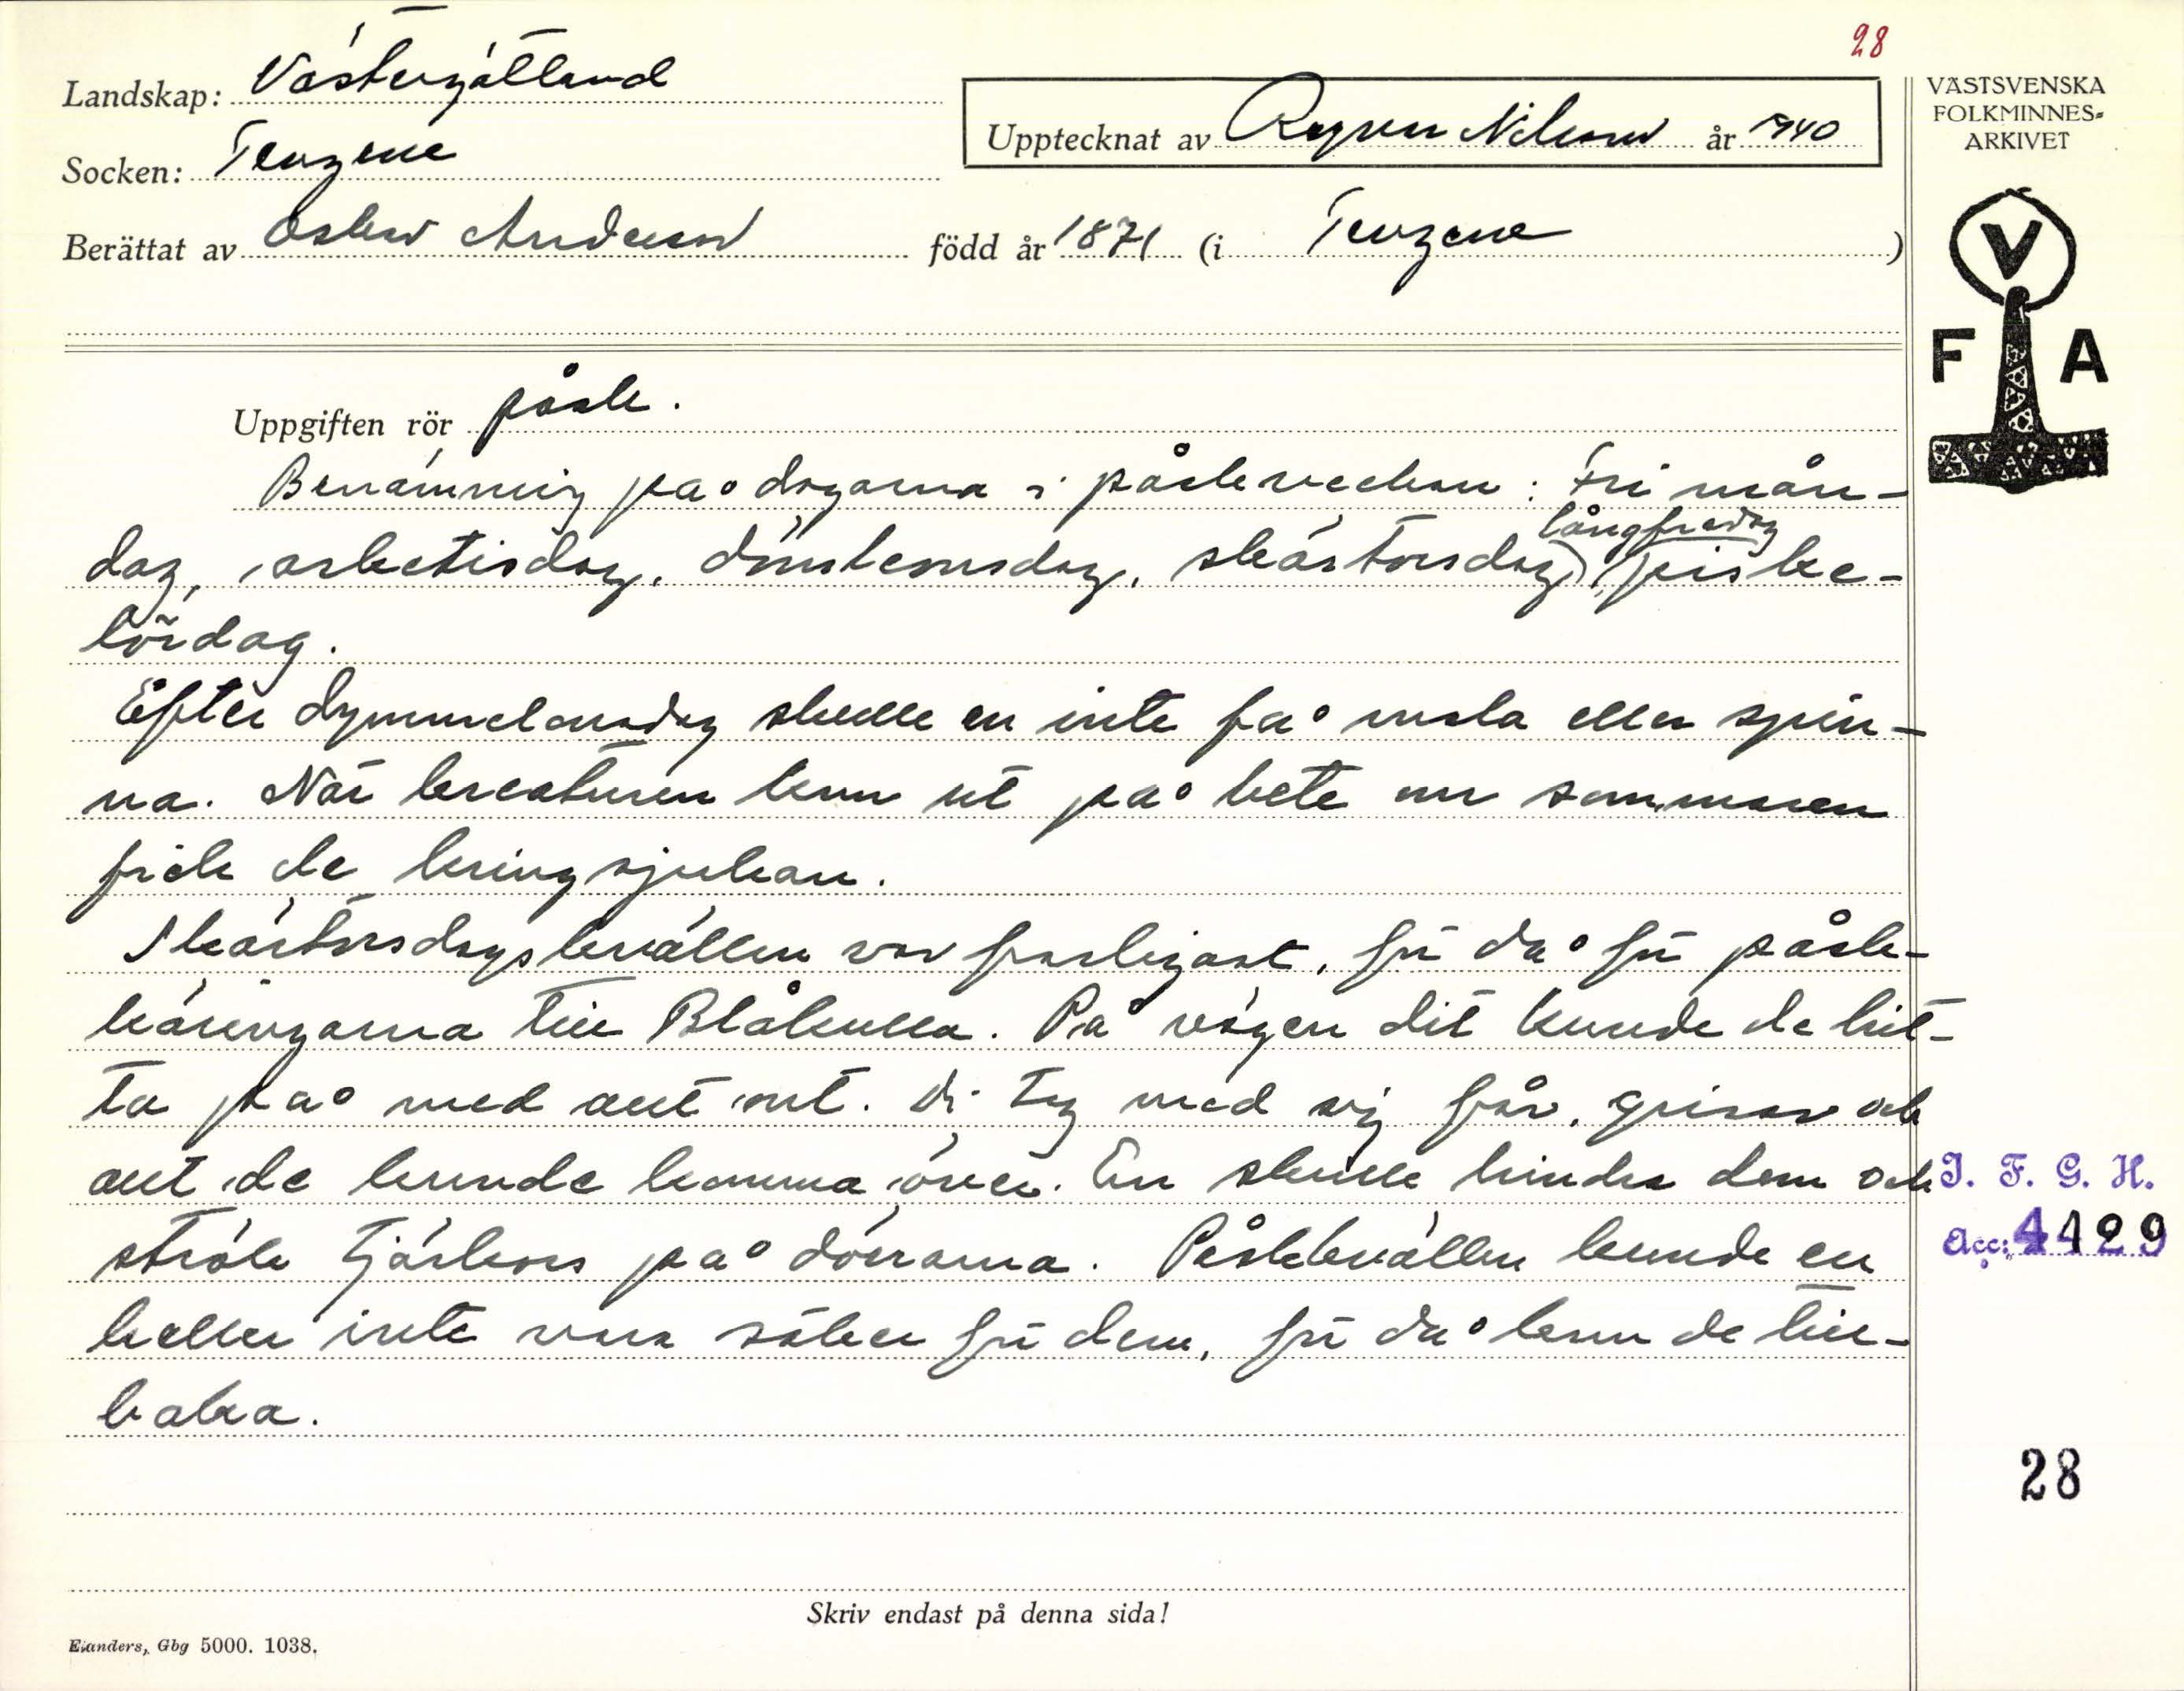 28
Landskap: Västergötland
Upptecknat av Ragnar Nilsson år 1940
VÄSTSVENSKA
FOLKMINNES-
ARKIVET
Socken: Tengene
Berättat av Oskar Andersson född år 1871 (i Tengene)
V
F A
Uppgiften rör påsk.
Benämning på dagarna i påskveckan: Fri mån-
långfredag
dag, arbetisdag, dimlemsdag, skärtorsdag, fiske-
lördag.
Efter dymmelonsdag skulle en inte få mala eller spin-
na. När kreaturen kom ut på bete om sommaren
fick de kringsjukan.
Skärtorsdagskvällen var farligast, för då för påsk-
käringarna till Blåkulla. På vägen dit kunde de hit-
ta på med allt ont. Di tog med sig får, grisar och
allt de kunde komma över. En skulle hindra dem och
I. F. G. H.
strök tjärkors på dörrarna. Påskkvällen kunde en
Acc: 4429
heller inte vara säker för dem, för då kom de till-
baka.
28
Skriv endast på denna sida!
Elanders, Gbg 5000. 1038.